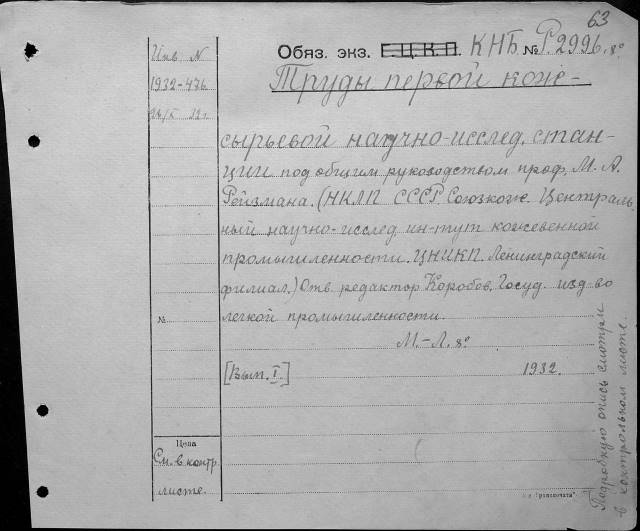 63
Инв. N
1932-476
Обяз. экз. Е.Ц.К.П. КНБ № Р.2996.8°
Труды первой коже-
сырьевой научно-исслед. стан-
ции под общим руководством проф. М. А.
Рейзмана. (НКЛП СССР. Союзкож. Централь
ный научно-исслед. ин-тут кожевенной
промышленности. ЦНИКП. Ленинградский
филиал.) Отв. редактор Коробов. Госуд. изд-во
легкой промышленности.
№
М.-Л. 8°
[Вып. I]
1932.
Цена
См. в контр.
листе.
Подробную опись смотри
в контрольном листе.